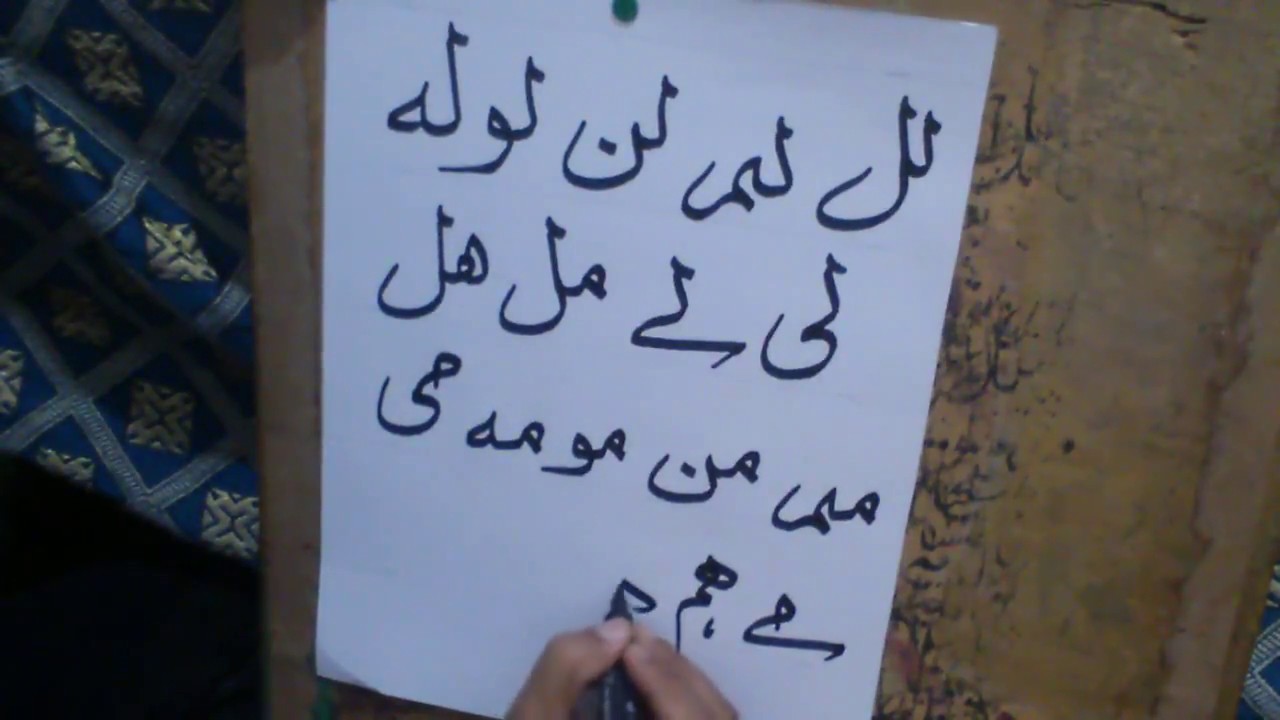 لل لم لن لو له
لی لے مل هل
مم من مو مه می
مے هم